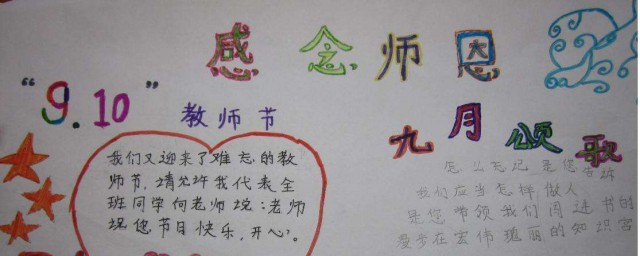 感念师恩
“9.10”
教师节
九月颂歌
我们又迎来了难忘的教
师节,请允许我代表全
班同学向老师说:老师
祝您节日快乐,开心。
怎么忘记 是您告诉
我们应当怎样做人
是您带领我们闯进书的
漫步在宏伟瑰丽的知识宫